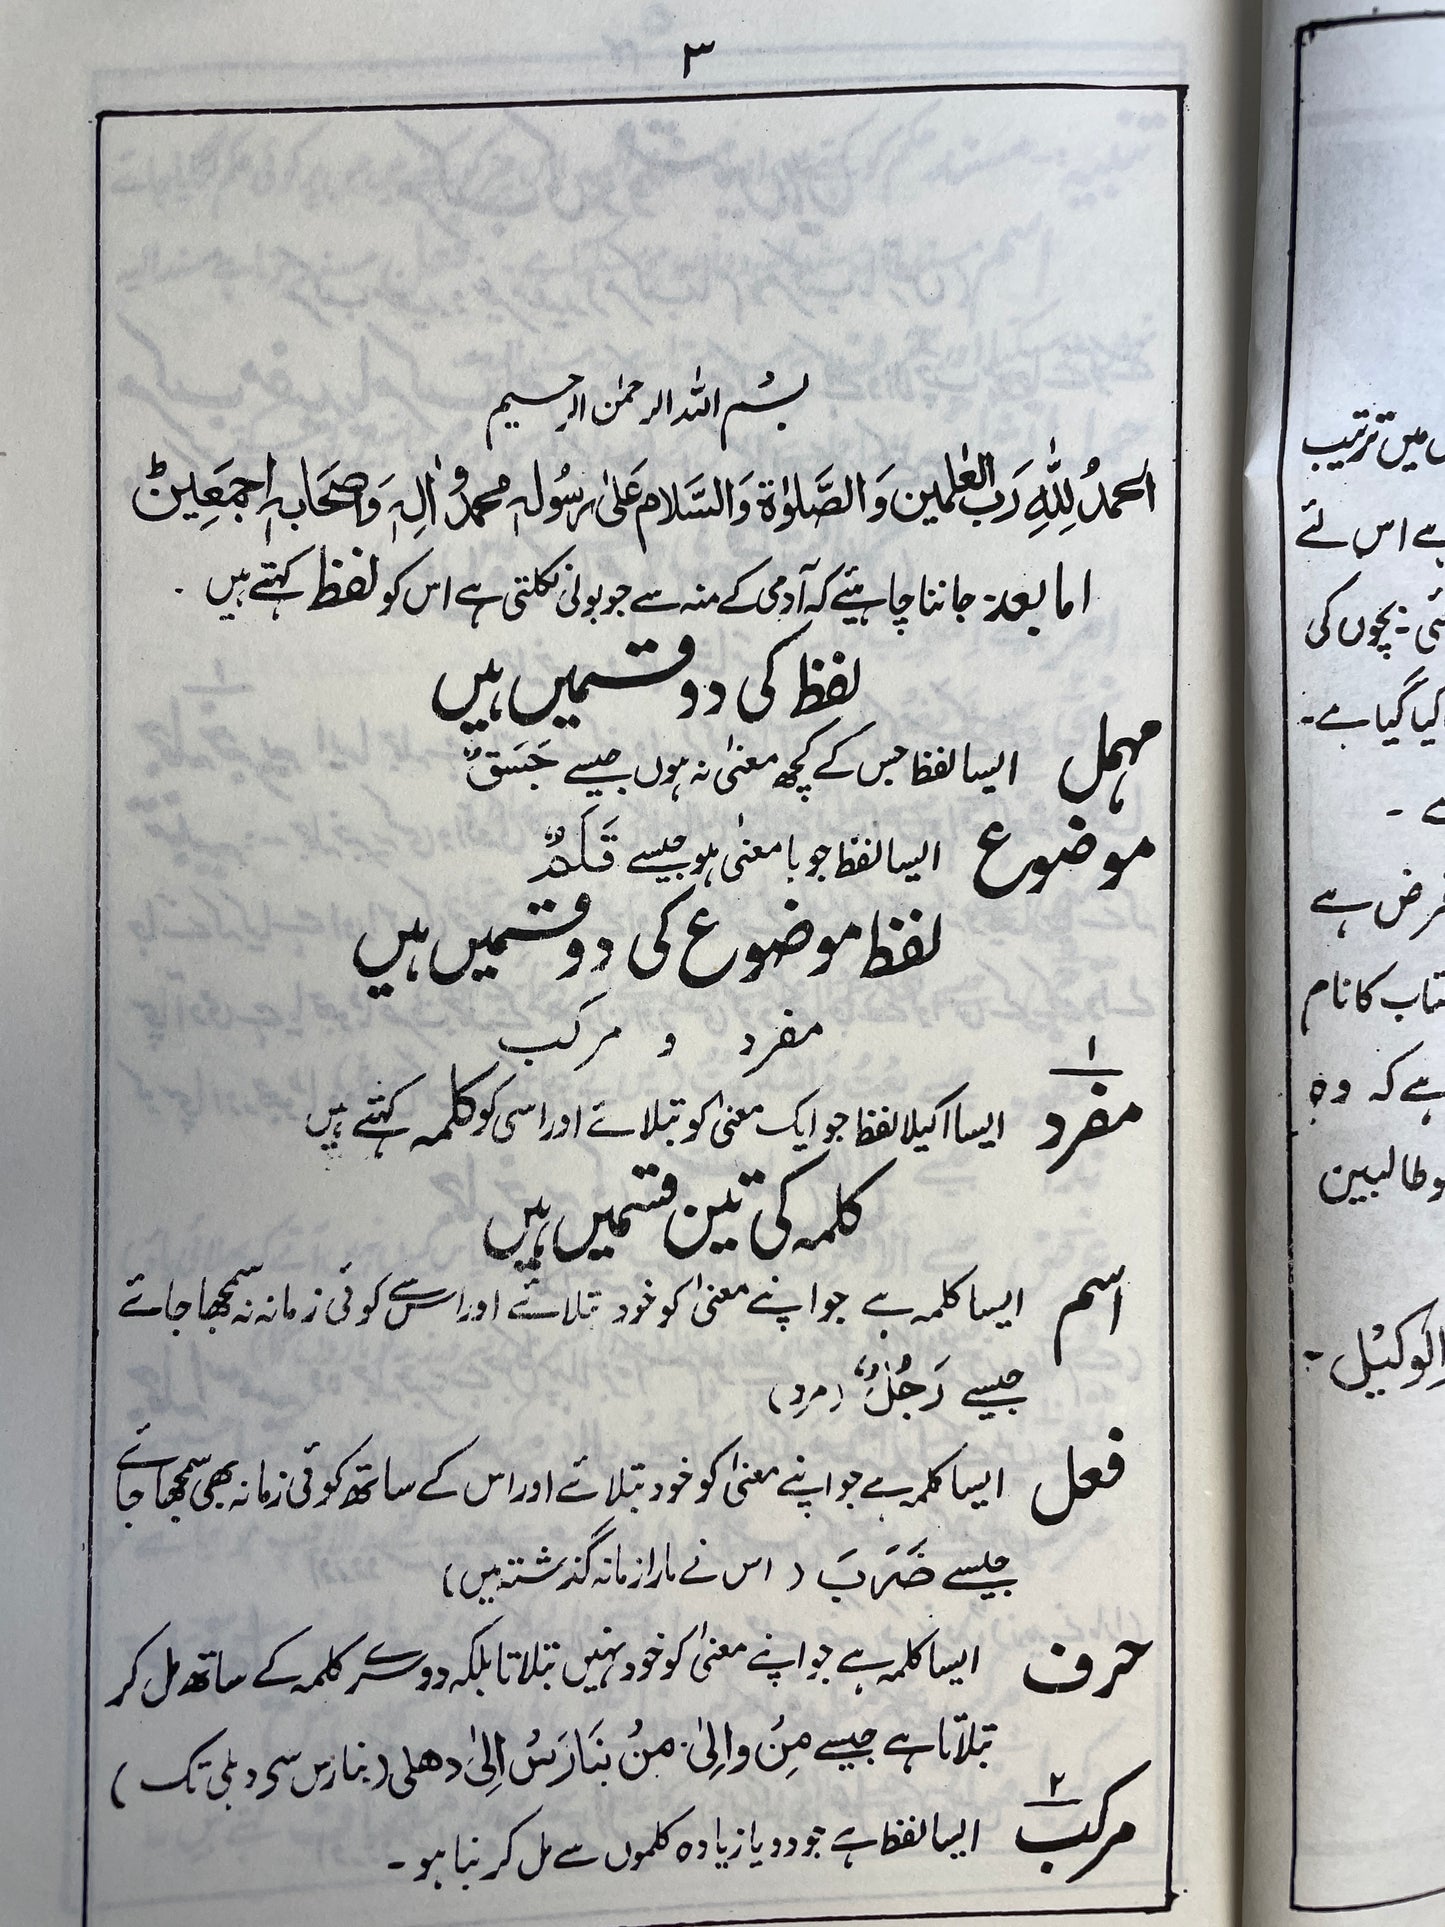 ۳
بسم الله الرحمٰن الرحیم
الحمدُ لِلّٰهِ رَب العٰلمین وَ الصَّلوٰة وَ السَّلام عَلیٰ رسُولهٖ محمدٍ وّ اٰلِهٖ وَ صحَابهٖ اجمَعِین
اما بعد: جاننا چاہئیے کہ آدمی کے منہ سے جو بولی نکلتی ہے اس کو لفظ کہتے ہیں ۔
لفظ کی دو قسمیں ہیں
مہمل ایسا لفظ جس کے کچھ معنیٰ نہ ہوں جیسے جَسَقٌ
موضوع ایسا لفظ جو با معنیٰ ہو جیسے قَلَمٌ
لفظ موضوع کی دو قسمیں ہیں
مفرد و مرکب
۱
مفرد ایسا اکیلا لفظ جو ایک معنیٰ کو بتلائے اور اسی کو کلمہ کہتے ہیں
کلمہ کی تین قسمیں ہیں
اسم ایسا کلمہ ہے جو اپنے معنیٰ کو خود بتلائے اور اس سے کوئی زمانہ نہ سمجھا جائے
جیسے رَجُلٌ (مرد)
فعل ایسا کلمہ ہے جو اپنے معنیٰ کو خود بتلائے اور اس کے ساتھ کوئی زمانہ بھی سمجھا جائے
جیسے ضَرَبَ ( اس نے مارا زمانہ گذشتہ میں)
حرف ایسا کلمہ ہے جو اپنے معنیٰ کو خود نہیں بتلاتا بلکہ دوسرے کلمہ کے ساتھ مل کر
بتلاتا ہے جیسے مِنُ و اِلیٰ ۔ مِنُ بَنَارَسُ اِلیٰ دھلی (بنارس سی دہلی تک )
۲
مرکب ایسا لفظ ہے جو دو یا زیادہ کلموں سے مل کر بنا ہو ۔
میں ترتیب
ہے اس لئے
بچوں کی
کیا گیا ہے ۔
ہے
کا نام
ہے کہ وہ
و طالبین
الوکیل ۔